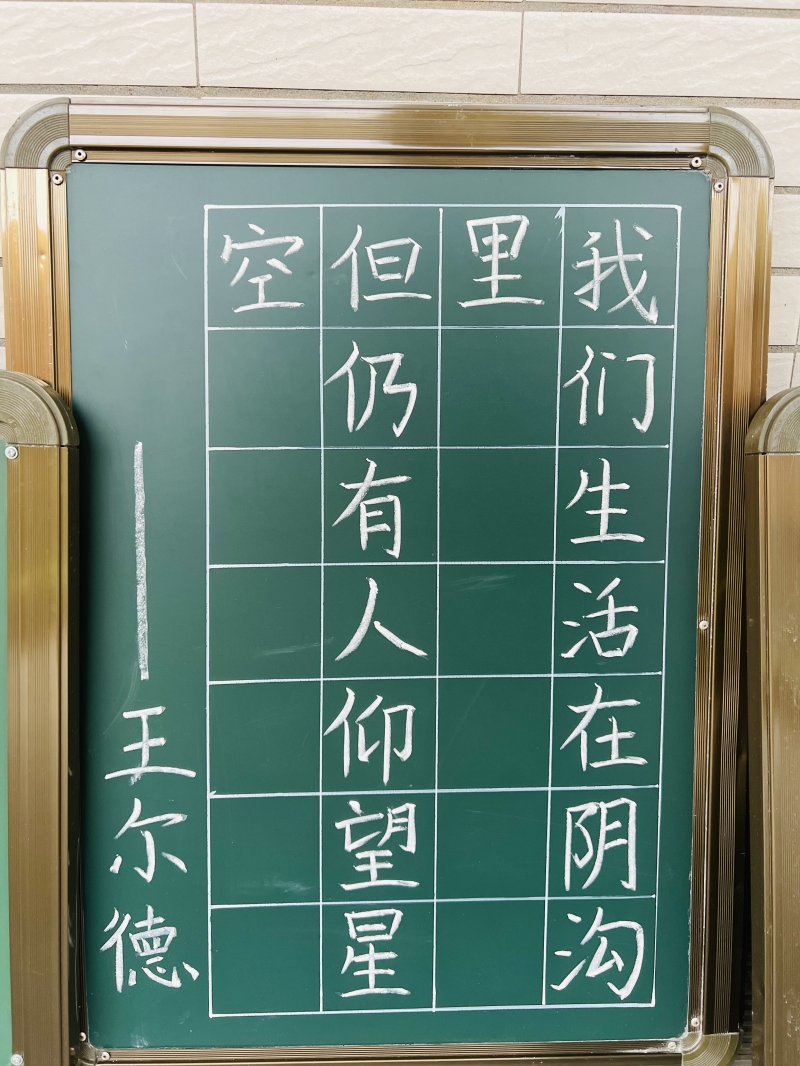 我们生活在阴沟
里
但仍有人仰望星
空
——王尔德